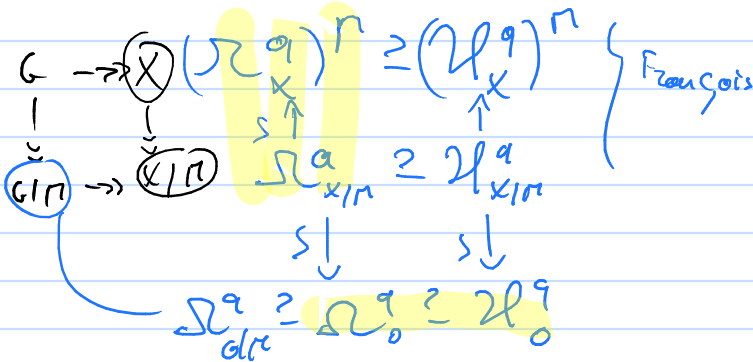 G ->> X (Ω^q_X)^Γ ⊇ (ℋ^q_X)^Γ François
G/Γ ->> X/Γ Ω^q_{X/Γ} ⊇ ℋ^q_{X/Γ}
Ω^q_{G/Γ} ⊇ Ω^q_0 ⊇ ℋ^q_0